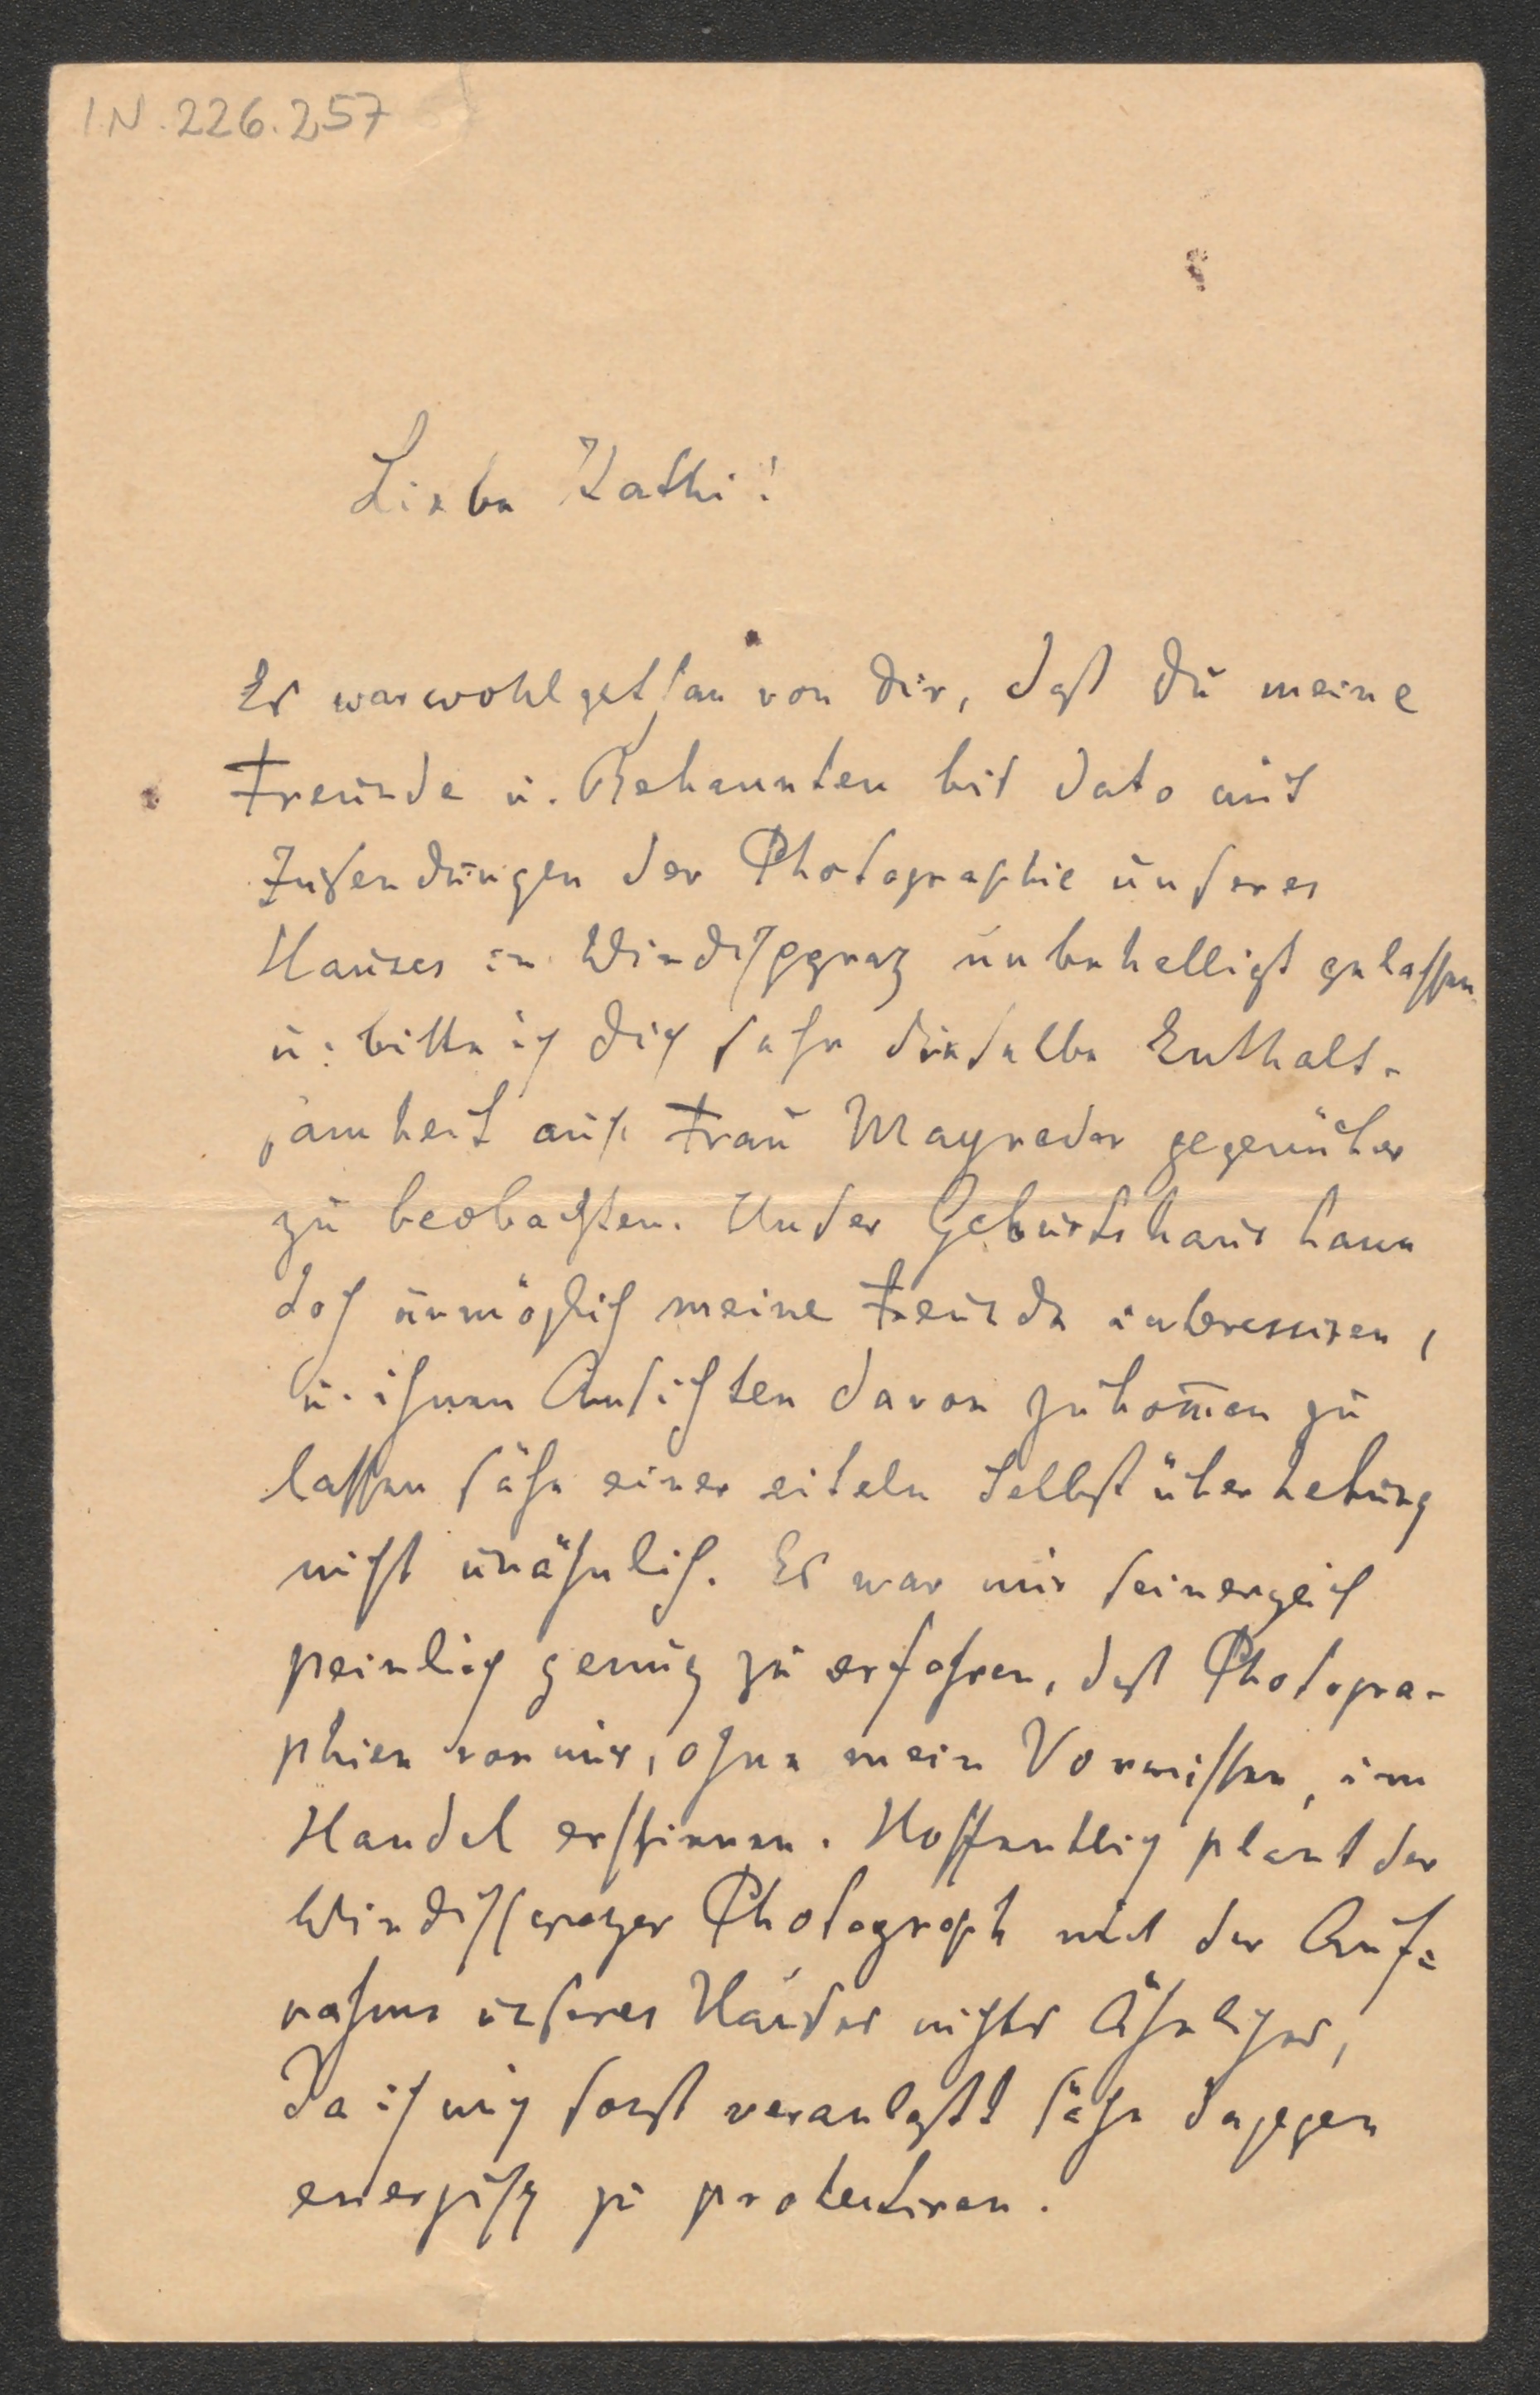 I.N. 226.257
Liebe Kathi!
Es war wohlgethan von Dir, daß Du meine
Freunde u. Bekannten bis dato mit
Zusendungen der Photographie unseres
Hauses in Windischgraz unbehelligt gelassen
u. bitte ich Dich sehr dieselbe Enthalt-
samkeit auch Frau Mayreder gegenüber
zu beobachten. Unser Geburtshaus kann
doch unmöglich meine Freunde interessiren,
u. ihnen Ansichten davon zukom̅en zu
lassen sähe einer eiteln Selbstüberhebung
nicht unähnlich. Es war mir seinerzeit
peinlich genug zu erfahren, daß Photogra-
phien von mir, ohne mein Vorwissen, im
Handel erschienen. Hoffentlich plant der
Windischgrazer Photograph mit der Auf=
nahme unseres Hauses nichts Ähnliches,
Da ich mich sonst veranlaßt sähe dagegen
energisch zu protestiren.